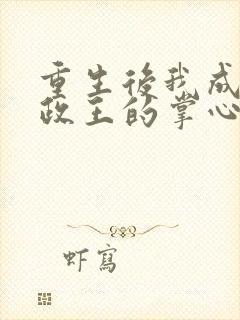 重生後我成
政王的掌心
虾寫